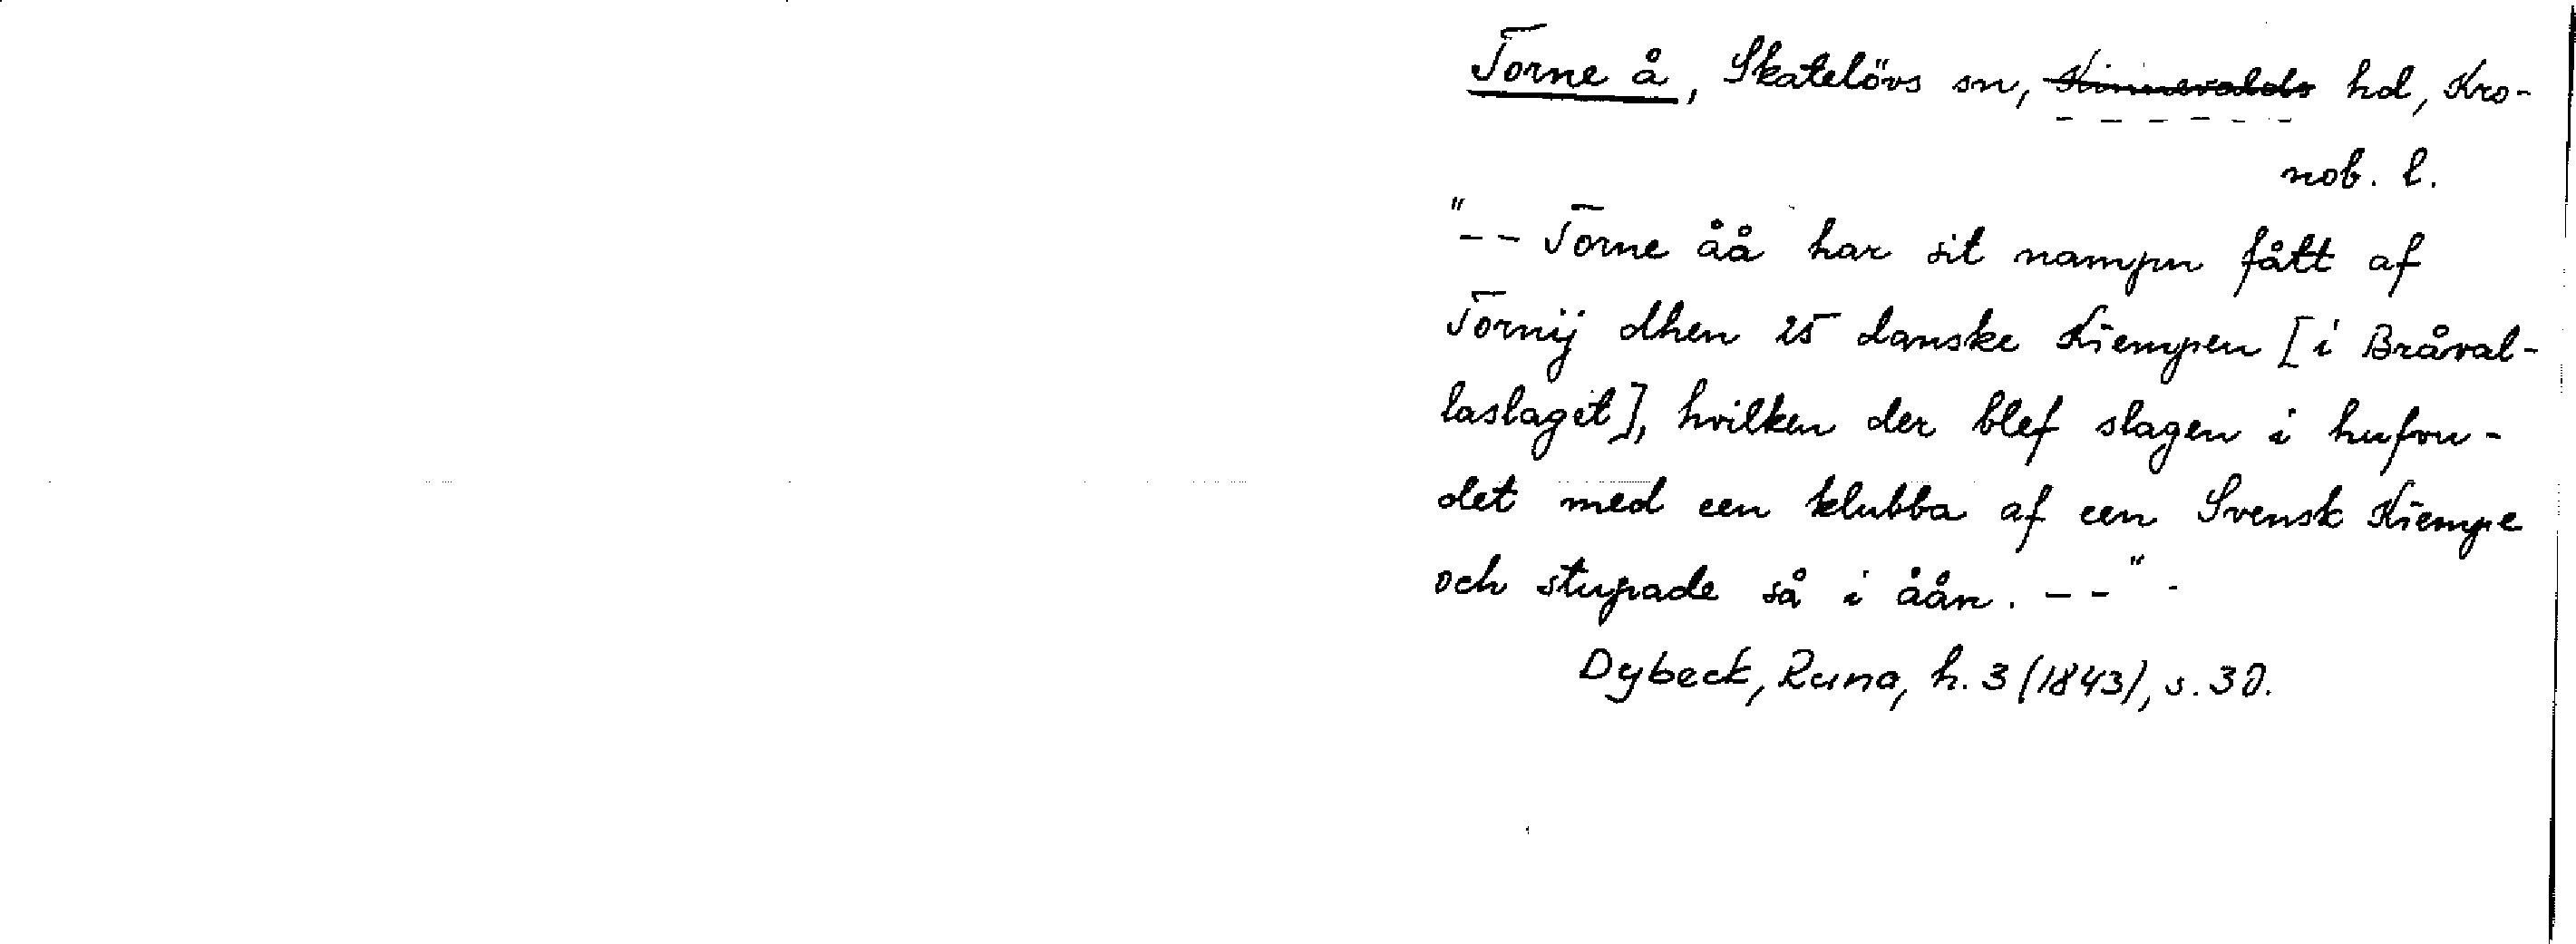 Torne å, Skatelövs sn, Kinnevalds hd, Kro-
nob. l.
"-- Torne åå har sit nampn fått af
Tornij dhen 25 danske Kiempen [i Bråval-
laslaget], hvilken der blef slagen i hufvu-
det med een klubba af een Svensk Kiempe
och stupade så i åån. --"-
Dybeck, Runa, h. 3 (1843), s. 30.